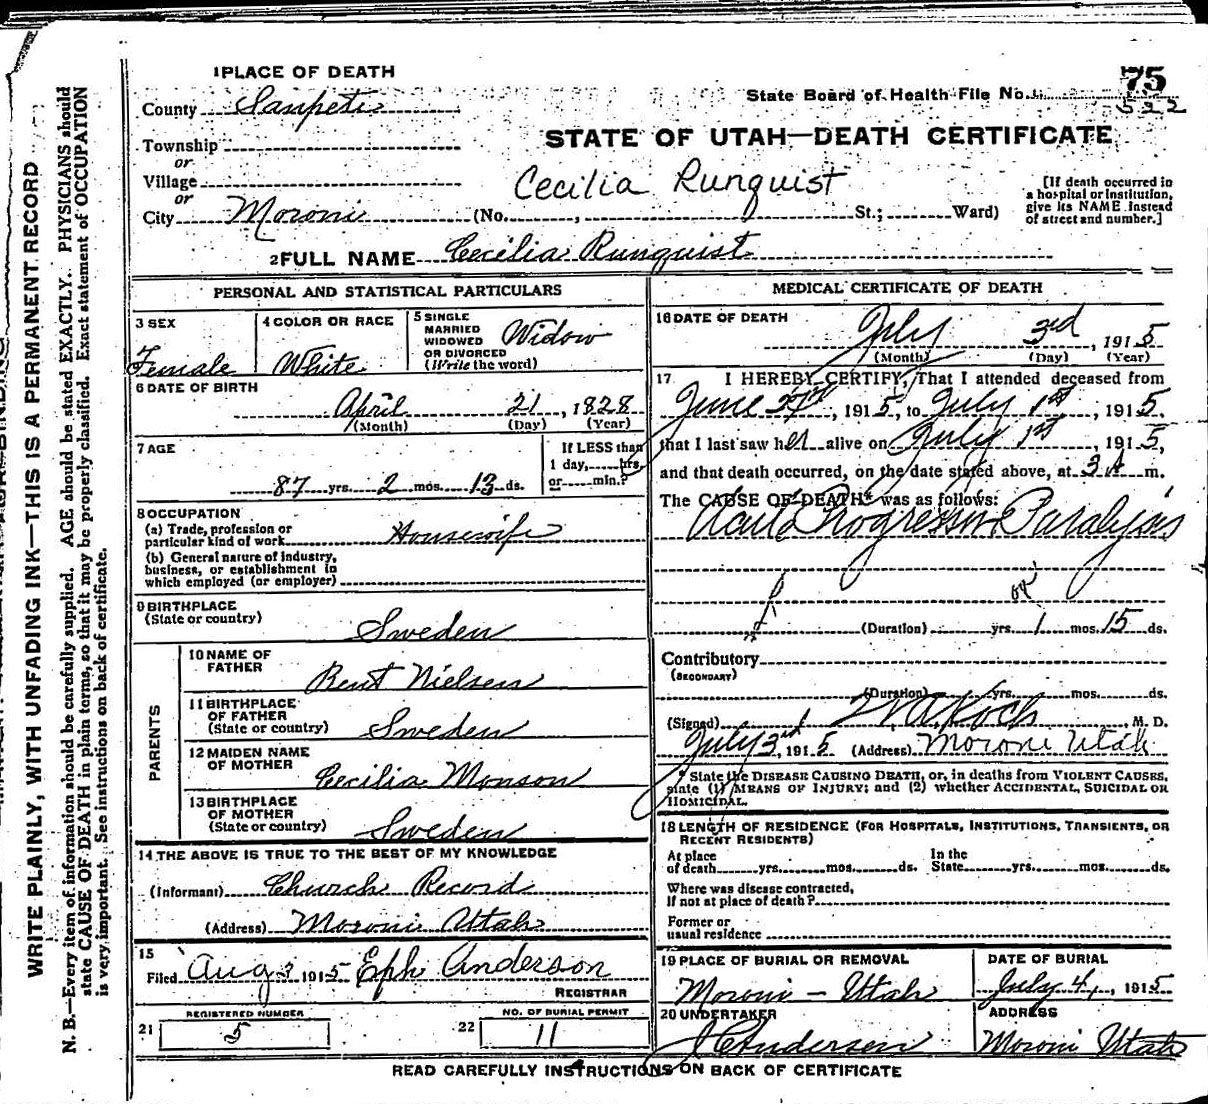 75
State Board of Health File No. 522
STATE OF UTAH—DEATH CERTIFICATE
1 PLACE OF DEATH
County Sanpete
Township
or
Village
or
City Moroni (No. , St.; Ward)
Cecilia Runquist
[If death occurred in a hospital or institution, give its NAME instead of street and number.]
2 FULL NAME Cecilia Runquist
PERSONAL AND STATISTICAL PARTICULARS
3 SEX
Female
4 COLOR OR RACE
White
5 SINGLE MARRIED WIDOWED OR DIVORCED (Write the word)
Widow
6 DATE OF BIRTH
April 21, 1828
(Month) (Day) (Year)
7 AGE
87 yrs. 2 mos. 13 ds.
If LESS than 1 day, hrs. or min.?
8 OCCUPATION
(a) Trade, profession or particular kind of work Housewife
(b) General nature of industry, business, or establishment in which employed (or employer)
9 BIRTHPLACE (State or country)
Sweden
PARENTS
10 NAME OF FATHER
Bent Nielsen
11 BIRTHPLACE OF FATHER (State or country)
Sweden
12 MAIDEN NAME OF MOTHER
Cecilia Monson
13 BIRTHPLACE OF MOTHER (State or country)
Sweden
14 THE ABOVE IS TRUE TO THE BEST OF MY KNOWLEDGE
(Informant) Church Record
(Address) Moroni Utah
15
Filed Aug 3 1915 Eph Anderson
REGISTRAR
21 REGISTERED NUMBER
5
22 NO. OF BURIAL PERMIT
11
MEDICAL CERTIFICATE OF DEATH
16 DATE OF DEATH
July 3rd, 1915
(Month) (Day) (Year)
17 I HEREBY CERTIFY, That I attended deceased from
June 27th, 1915, to July 1st, 1915
that I last saw her alive on July 1st, 1915,
and that death occurred, on the date stated above, at 3 A m.
The CAUSE OF DEATH* was as follows:
Acute Progressive Paralysis
(Duration) yrs. 1 mos. 15 ds.
Contributory
(SECONDARY)
(Duration) yrs. mos. ds.
(Signed) Koch, M. D.
July 3rd, 1915 (Address) Moroni Utah
* State the DISEASE CAUSING DEATH, or, in deaths from VIOLENT CAUSES, state (1) MEANS OF INJURY; and (2) whether ACCIDENTAL, SUICIDAL OR HOMICIDAL.
18 LENGTH OF RESIDENCE (FOR HOSPITALS, INSTITUTIONS, TRANSIENTS, OR RECENT RESIDENTS)
At place of death yrs. mos. ds. In the State yrs. mos. ds.
Where was disease contracted, if not at place of death?
Former or usual residence
19 PLACE OF BURIAL OR REMOVAL
Moroni - Utah
DATE OF BURIAL
July 4, 1915
20 UNDERTAKER
J C Andersen
ADDRESS
Moroni Utah
READ CAREFULLY INSTRUCTIONS ON BACK OF CERTIFICATE
WRITE PLAINLY, WITH UNFADING INK—THIS IS A PERMANENT RECORD
N. B.—Every item of information should be carefully supplied. AGE should be stated EXACTLY. PHYSICIANS should
state CAUSE OF DEATH in plain terms, so that it may be properly classified. Exact statement of OCCUPATION
is very important. See instructions on back of certificate.